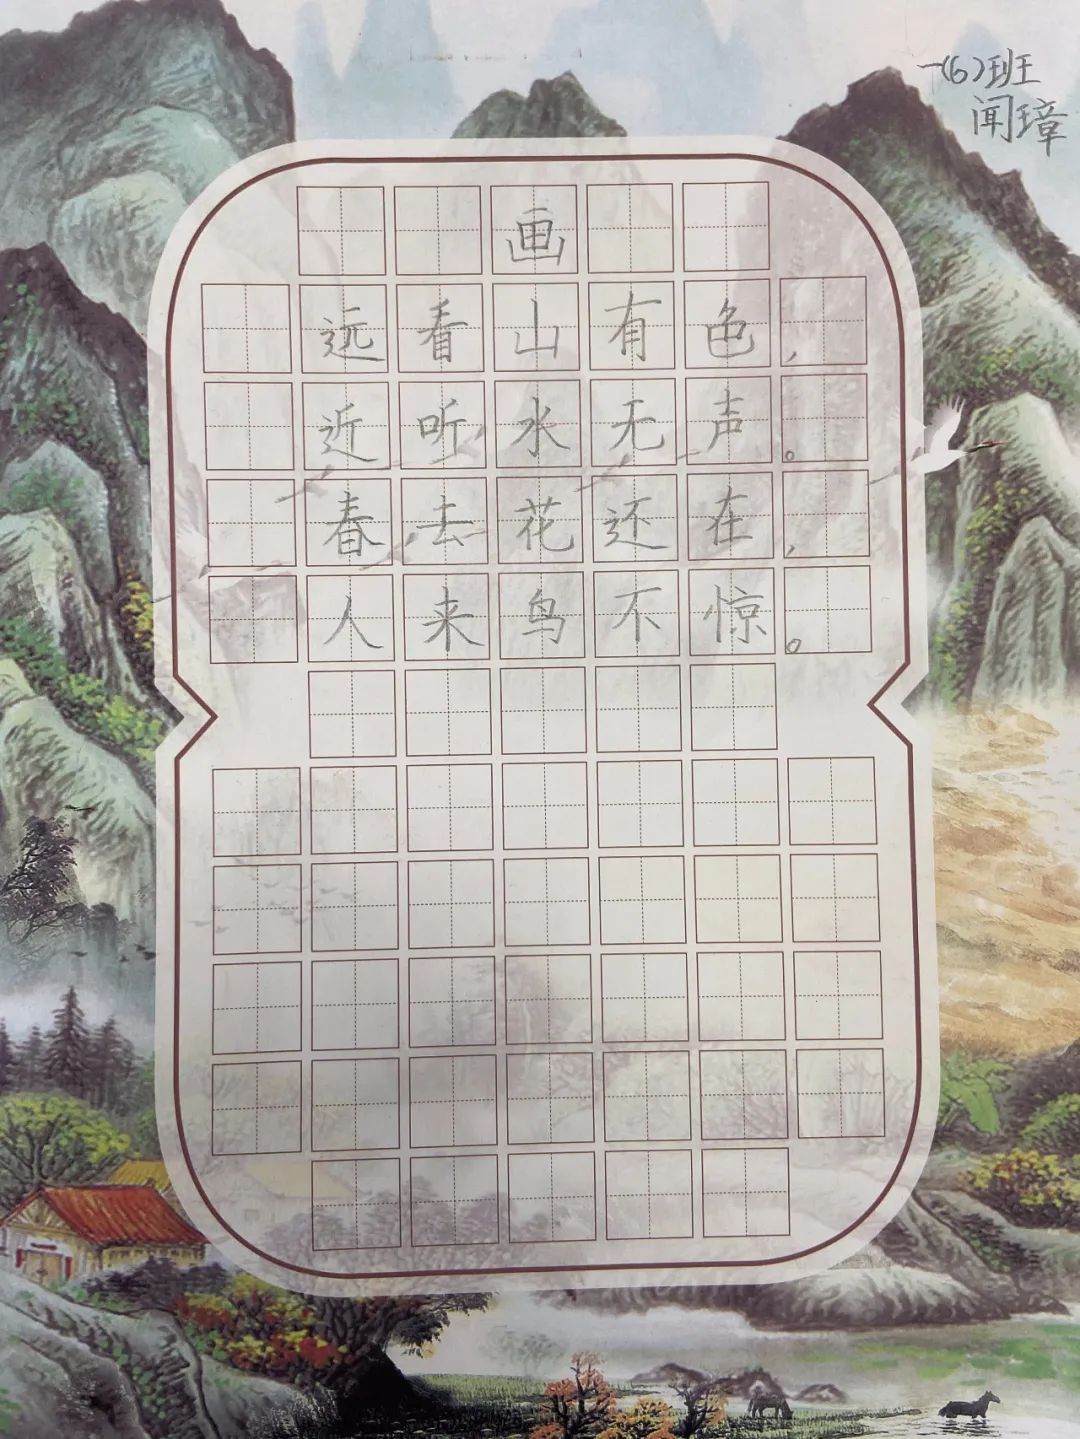 一(6)班
闻璋
画
远看山有色，
近听水无声。
春去花还在，
人来鸟不惊。